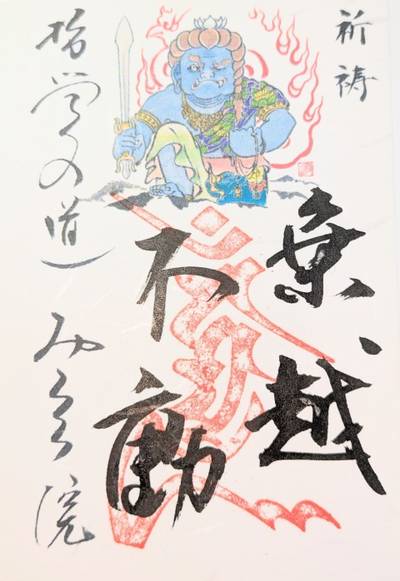 祈祷
乗越
不動
哲学の道 みろく院